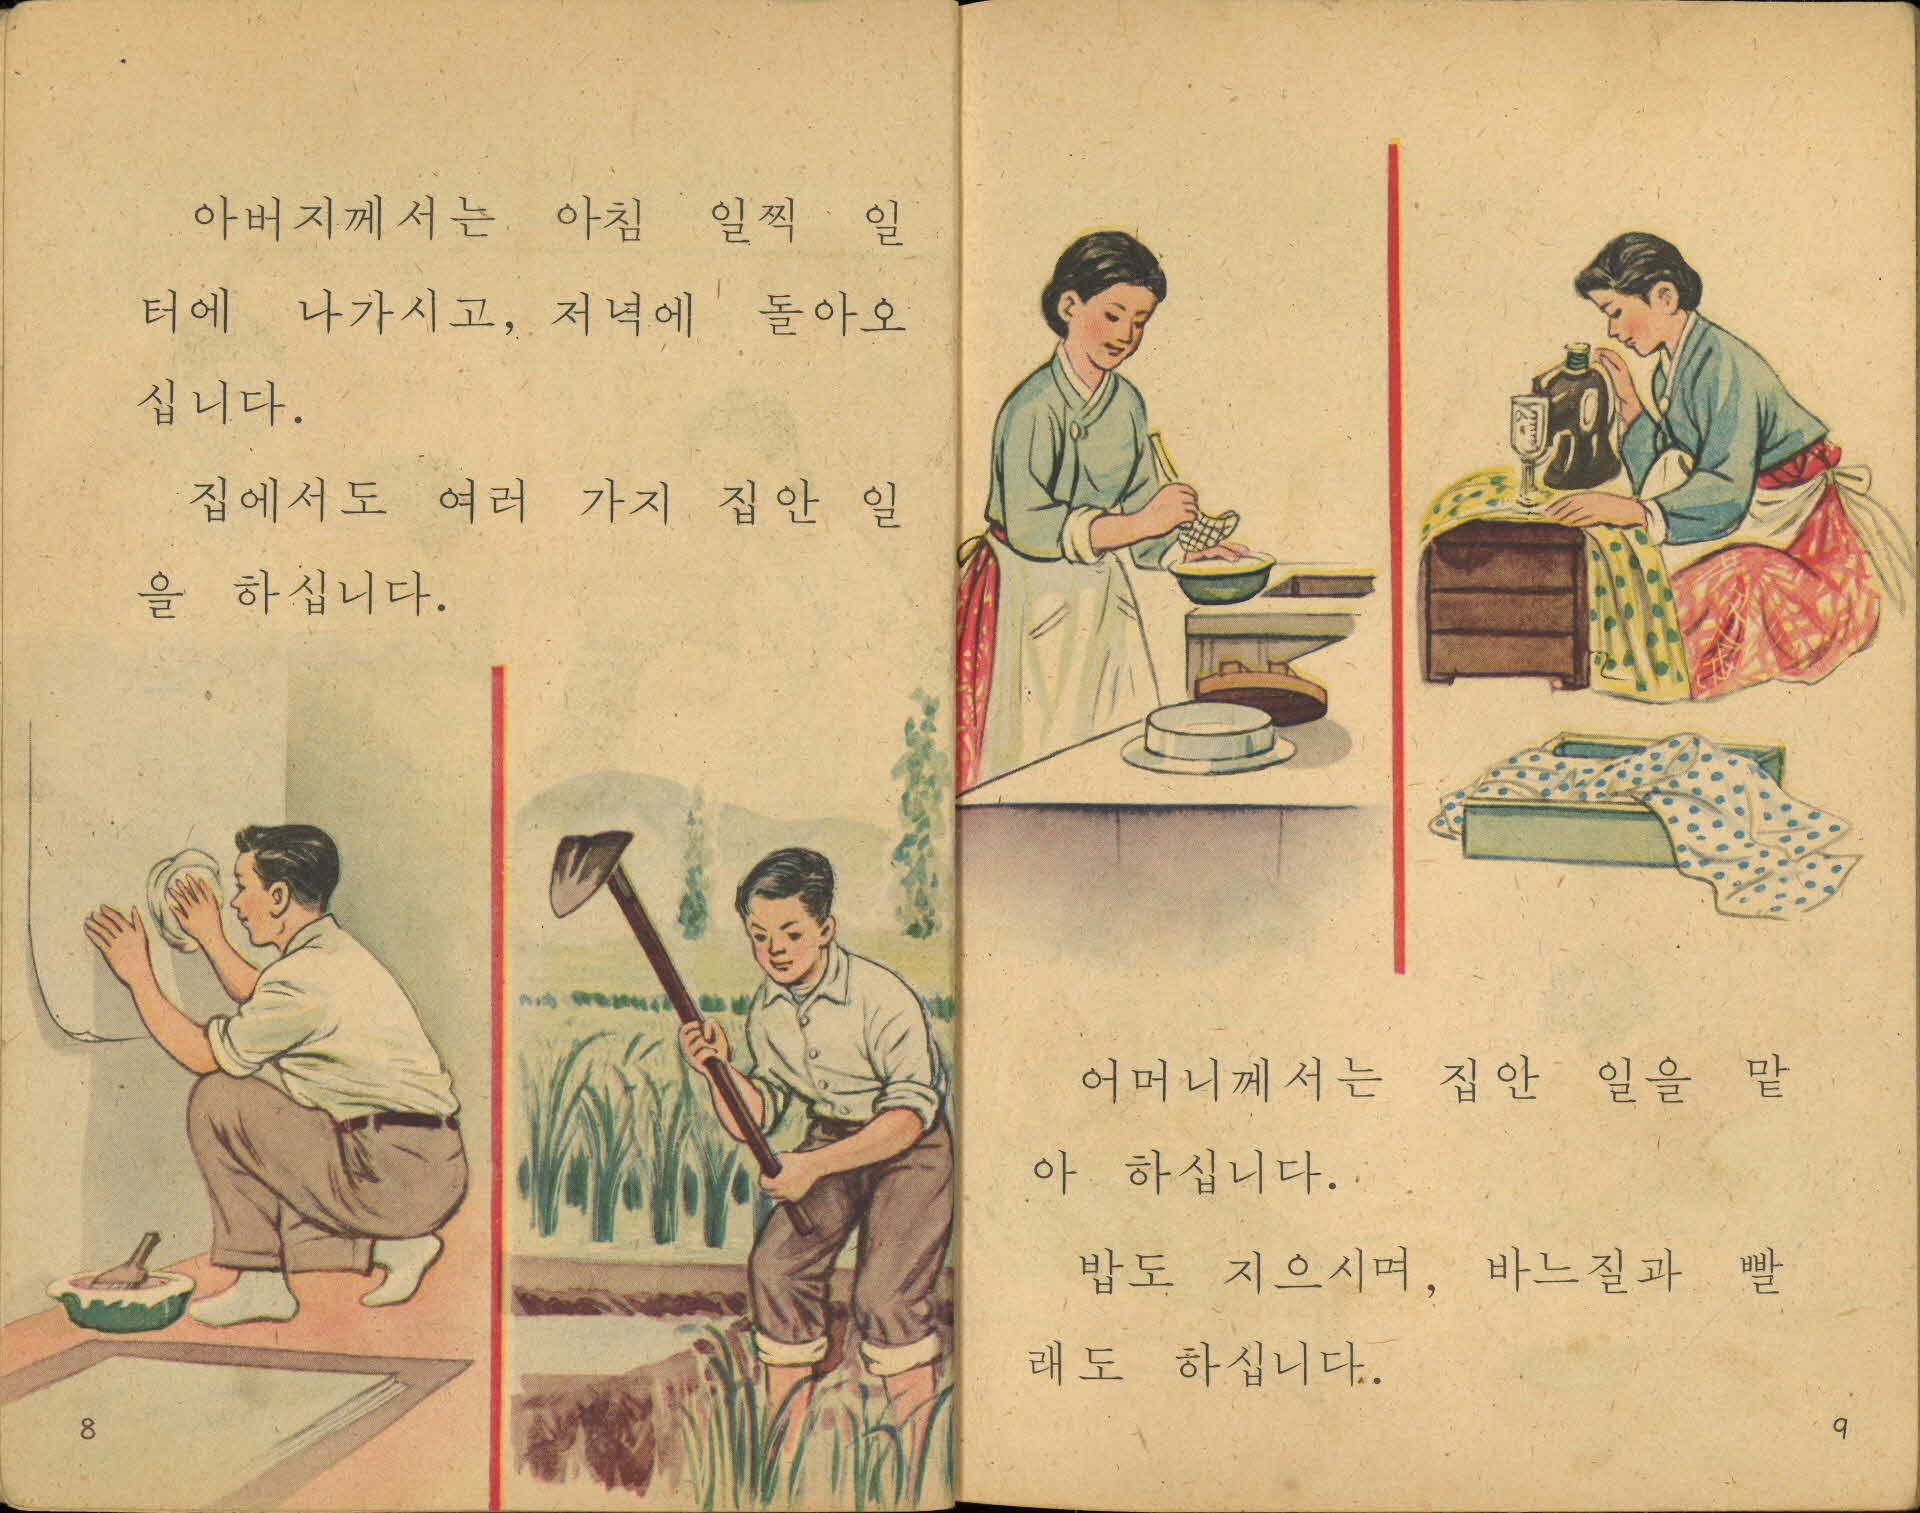 아버지께서는 아침 일찍 일
터에 나가시고, 저녁에 돌아오
십니다.
집에서도 여러 가지 집안 일
을 하십니다.
8
어머니께서는 집안 일을 맡
아 하십니다.
밥도 지으시며, 바느질과 빨
래도 하십니다.
9